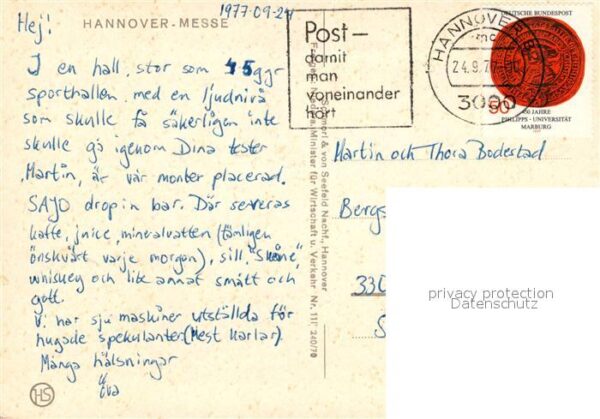 1977-09-24
Hej!
HANNOVER-MESSE
I en hall, stor som 15 ggr
sporthallen med en ljudnivå
som skulle få säkerligen inte
skulle gå igenom Dina tester
Martin, är vår monter placerad.
SAJO drop in bar. Där serveras
kaffe, juice, mineralvatten (tämligen
önskvärt varje morgon), sill, "Skåne",
whiskey och lite annat smått och
gott.
Vi har sju maskiner utställda för
hugade spekulanter (Mest karlar).
Många hälsningar
Eva
HS
Post-
damit
man
voneinander
hört
HANNOVER
24.9.77
3000
DEUTSCHE BUNDESPOST
50
JAHRE
PHILIPPS-UNIVERSITÄT
MARBURG
Martin och Thora Bodestad
Bergs
330
S
& von Seefeld Nachf., Hannover
Minister für Wirtschaft u. Verkehr Nr. 111 240/70
privacy protection
Datenschutz